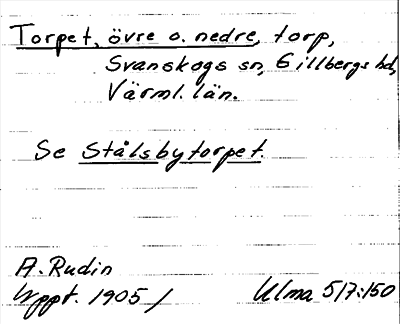 Torpet, övre o. nedre, torp,
Svanskogs sn, Gillbergs hd,
Värml. län.
Se Stålsbytorpet.
A. Rudin
Uppt. 1905/
Ulma 517:150